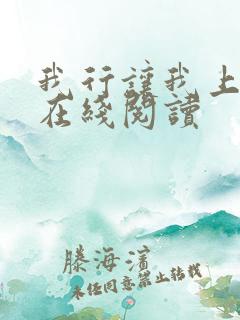 我行讓我上
在綫閱讀
滕海濱
未經同意禁止轉載